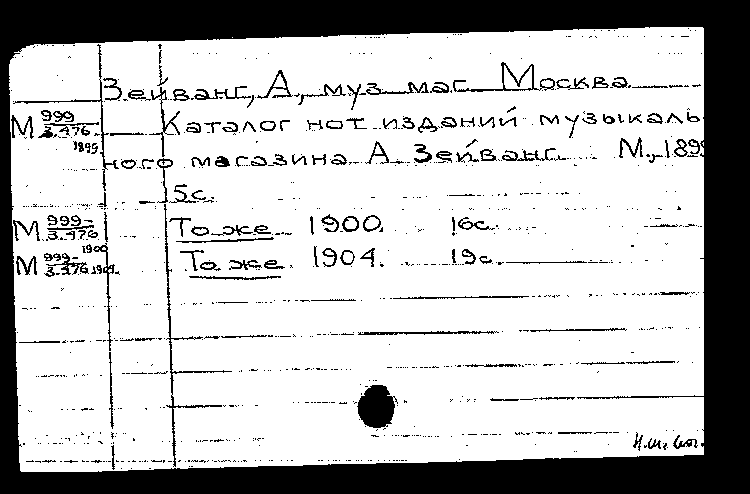 Зейванг, А, муз маг Москва
М 999 Каталог нот изданий музыкаль
3.476
1899. ного магазина А Зейванг. М., 1899
15с.
М 999- То же 1900. 16с.
3.476
1900
М 999- То же 1904. 19с.
3.476 1904.